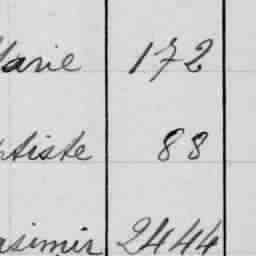 Marie 172
ptiste 88
asimir 2444